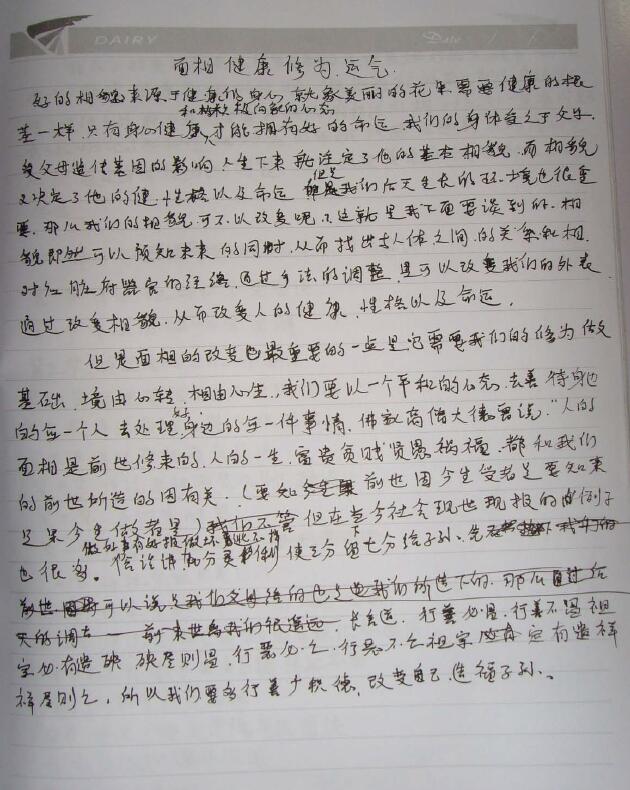 DAIRY
Date
面相 健康 修为 运气
好的相貌来源于健康的身心 就象美丽的花朵需要健康的根
和枝 积极向上的心态
茎一样 只有身心健康 才能拥有好的命运 我们的身体受之于父母
受父母遗传基因的影响 人生下来就注定了他的基本相貌 而相貌
但是
又决定了他的健 性格以及命运 我们后天生长的环境也很重
要 那么我们的相貌可不可以改变呢 这就是我下面要谈到的 相
貌即然可以预知未来的同时 从而找出人体之间的关系和相
对红脏府器官的经络 通过手法的调整 是可以改变我们的外表
通过改变相貌 从而改变人的健康 性格以及命运
但是面相的改变也最重要的一点是它需要我们的修为做
基础 境由心转 相由心生 我们要以一个平和的心态 去善待身边
好
的每一个人 去处理身边的每一件事情 佛教高僧大德曾说 "人的
面相是前世修来的 人的一生 富贵贫贱贤愚祸福 都和我们
的前世所造的因有关 (要知 前世因今生受者是要知来
世果今生做者是) 我们不管 但在当今社会现世现报的例子
也很多 俗话讲 分 使三分留七分给子孙
前世 可以说是我们父母给的也是我们所造下的 那么通过后
天的调左 前来世离我们很遥远 长言道 行善必昌 行善不昌祖
宗必有遗殃 殃尽则昌 行恶必亡 行恶不亡祖宗 定有遗祥
祥尽则亡 所以我们要多行善少积德 改变自己 造福子孙